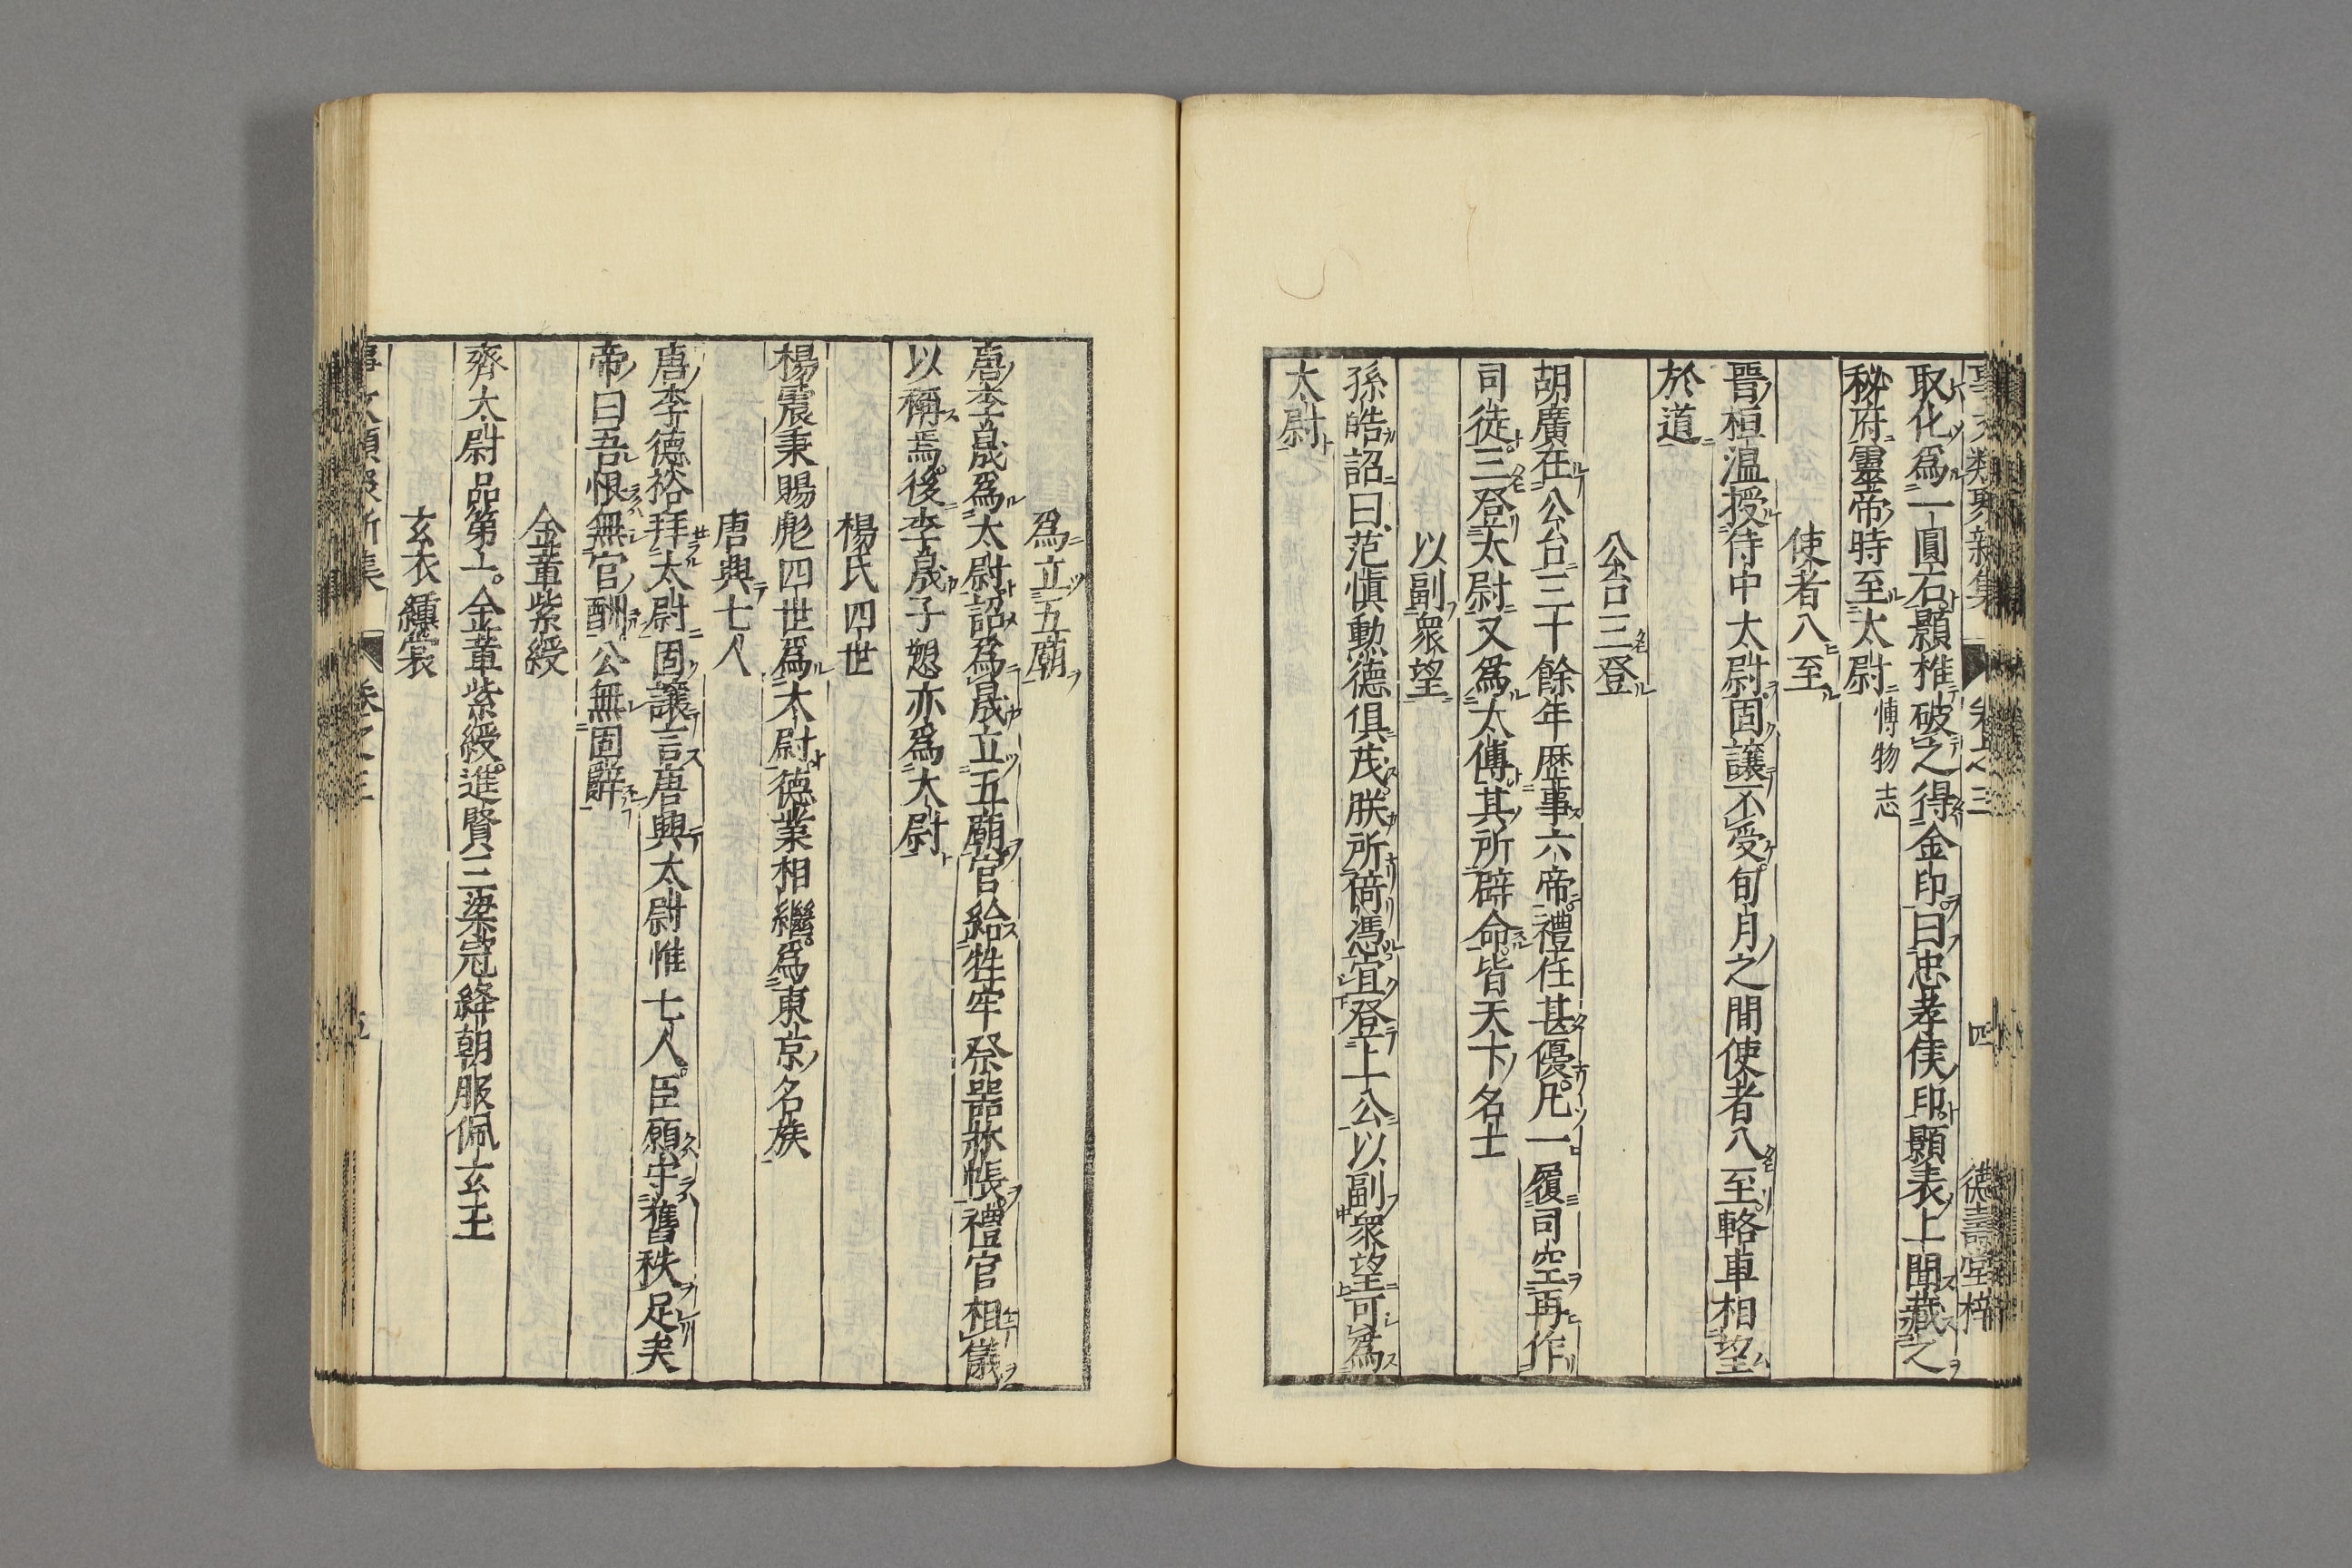 事文類聚新集 卷之三 四 德壽堂梓
取化爲一圓石顥椎破之得金印曰忠孝侯印顥表上聞藏之
秘府靈帝時至太尉博物志
使者八至
晉桓溫授侍中太尉固讓不受旬月之間使者八至輅車相望
於道
公台三登
胡廣在公台三十餘年歷事六帝禮任甚優凡一履司空再作
司徒三登太尉又爲太傅其所辟命皆天下名士
以副衆望
孫皓詔曰范愼勳德俱茂朕所倚馮宜登上公以副衆望可爲
太尉
爲立五廟
唐李晟爲太尉詔爲晟立五廟官給牲牢祭器牀帳禮官相儀
以稱焉後李晟子愬亦爲太尉
楊氏四世
楊震秉賜彪四世爲太尉德業相繼爲東京名族
唐興七人
唐李德裕拜太尉固讓言唐興太尉惟七人臣願守舊秩足矣
帝曰吾恨無官酬公無固辭
金章紫綬
齊太尉品第一金章紫綬進賢三梁冠絳朝服佩玄玉
玄衣纁裳
事文類聚新集 卷之三 五